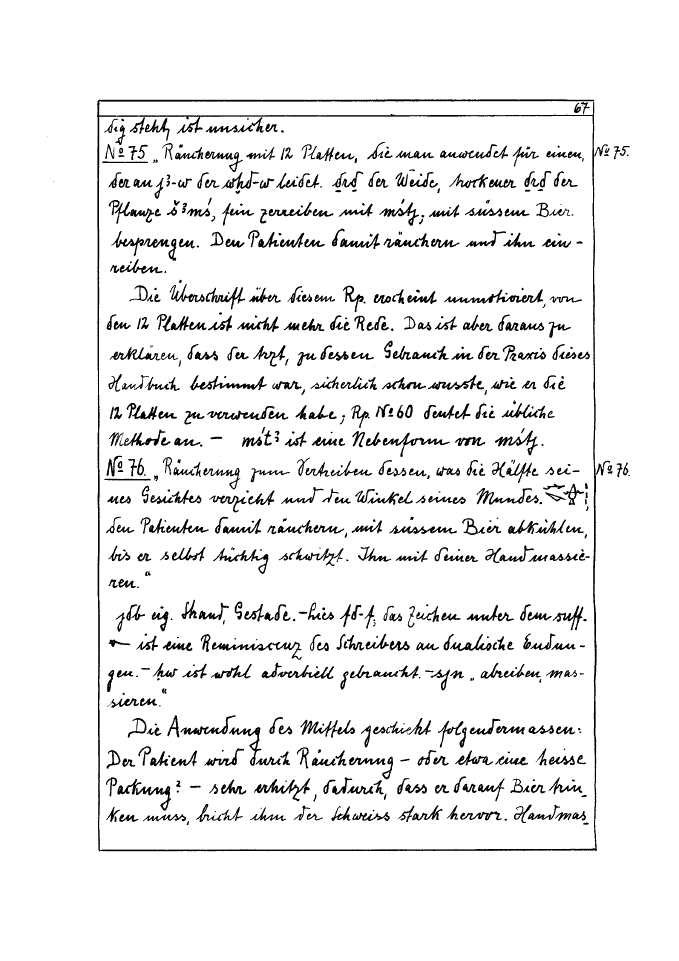 67
dig steht, ist unsicher.
No 75 „Räucherung mit 12 Platten, die man anwendet für einen, No 75.
der an j3-w der whd-w leidet. drd der Weide, trockener drd der
Pflanze š3mś, fein zerreiben mit mśtj; mit süssem Bier
besprengen. Den Patienten damit räuchern und ihn ein-
reiben."
Die Überschrift über diesem Rp. erscheint unmotiviert, von
den 12 Platten ist nicht mehr die Rede. Das ist aber daraus zu
erklären, dass der Arzt, zu dessen Gebrauch in der Praxis dieses
Handbuch bestimmt war, sicherlich schon wusste, wie er die
12 Platten zu verwenden habe; Rp. No 60 deutet die übliche
Methode an. — mśt3 ist eine Nebenform von mśtj.
No 76. „Räucherung zum Vertreiben dessen, was die Hälfte sei- No 76.
nes Gesichtes verzieht und den Winkel seines Mundes.
den Patienten damit räuchern, mit süssem Bier abkühlen,
bis er selbst tüchtig schwitzt. Ihn mit deiner Hand massie-
ren."
jdb eig. Strand, Gestade. - lies fd-f; das Zeichen unter dem suff.
ist eine Reminiscenz des Schreibers an dualische Endun-
gen. - hw ist wohl adverbiell gebraucht. - sjn „abreiben, mas-
sieren."
Die Anwendung des Mittels geschieht folgendermassen:
Der Patient wird durch Räucherung — oder etwa eine heisse
Packung? — sehr erhitzt, dadurch, dass er darauf Bier trin-
ken muss, bricht ihm der Schweiss stark hervor. Handmas-